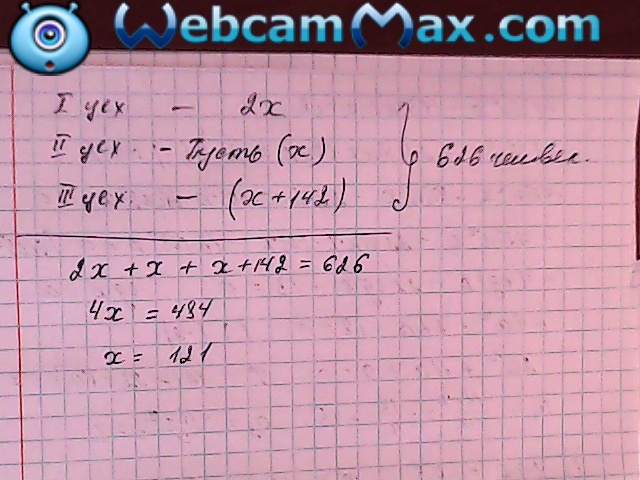 WebcamMax.com
I цех - 2x
II цех - Пусть (x)
III цех - (x+142)
626 человек.
2x + x + x+142 = 626
4x = 484
x = 121